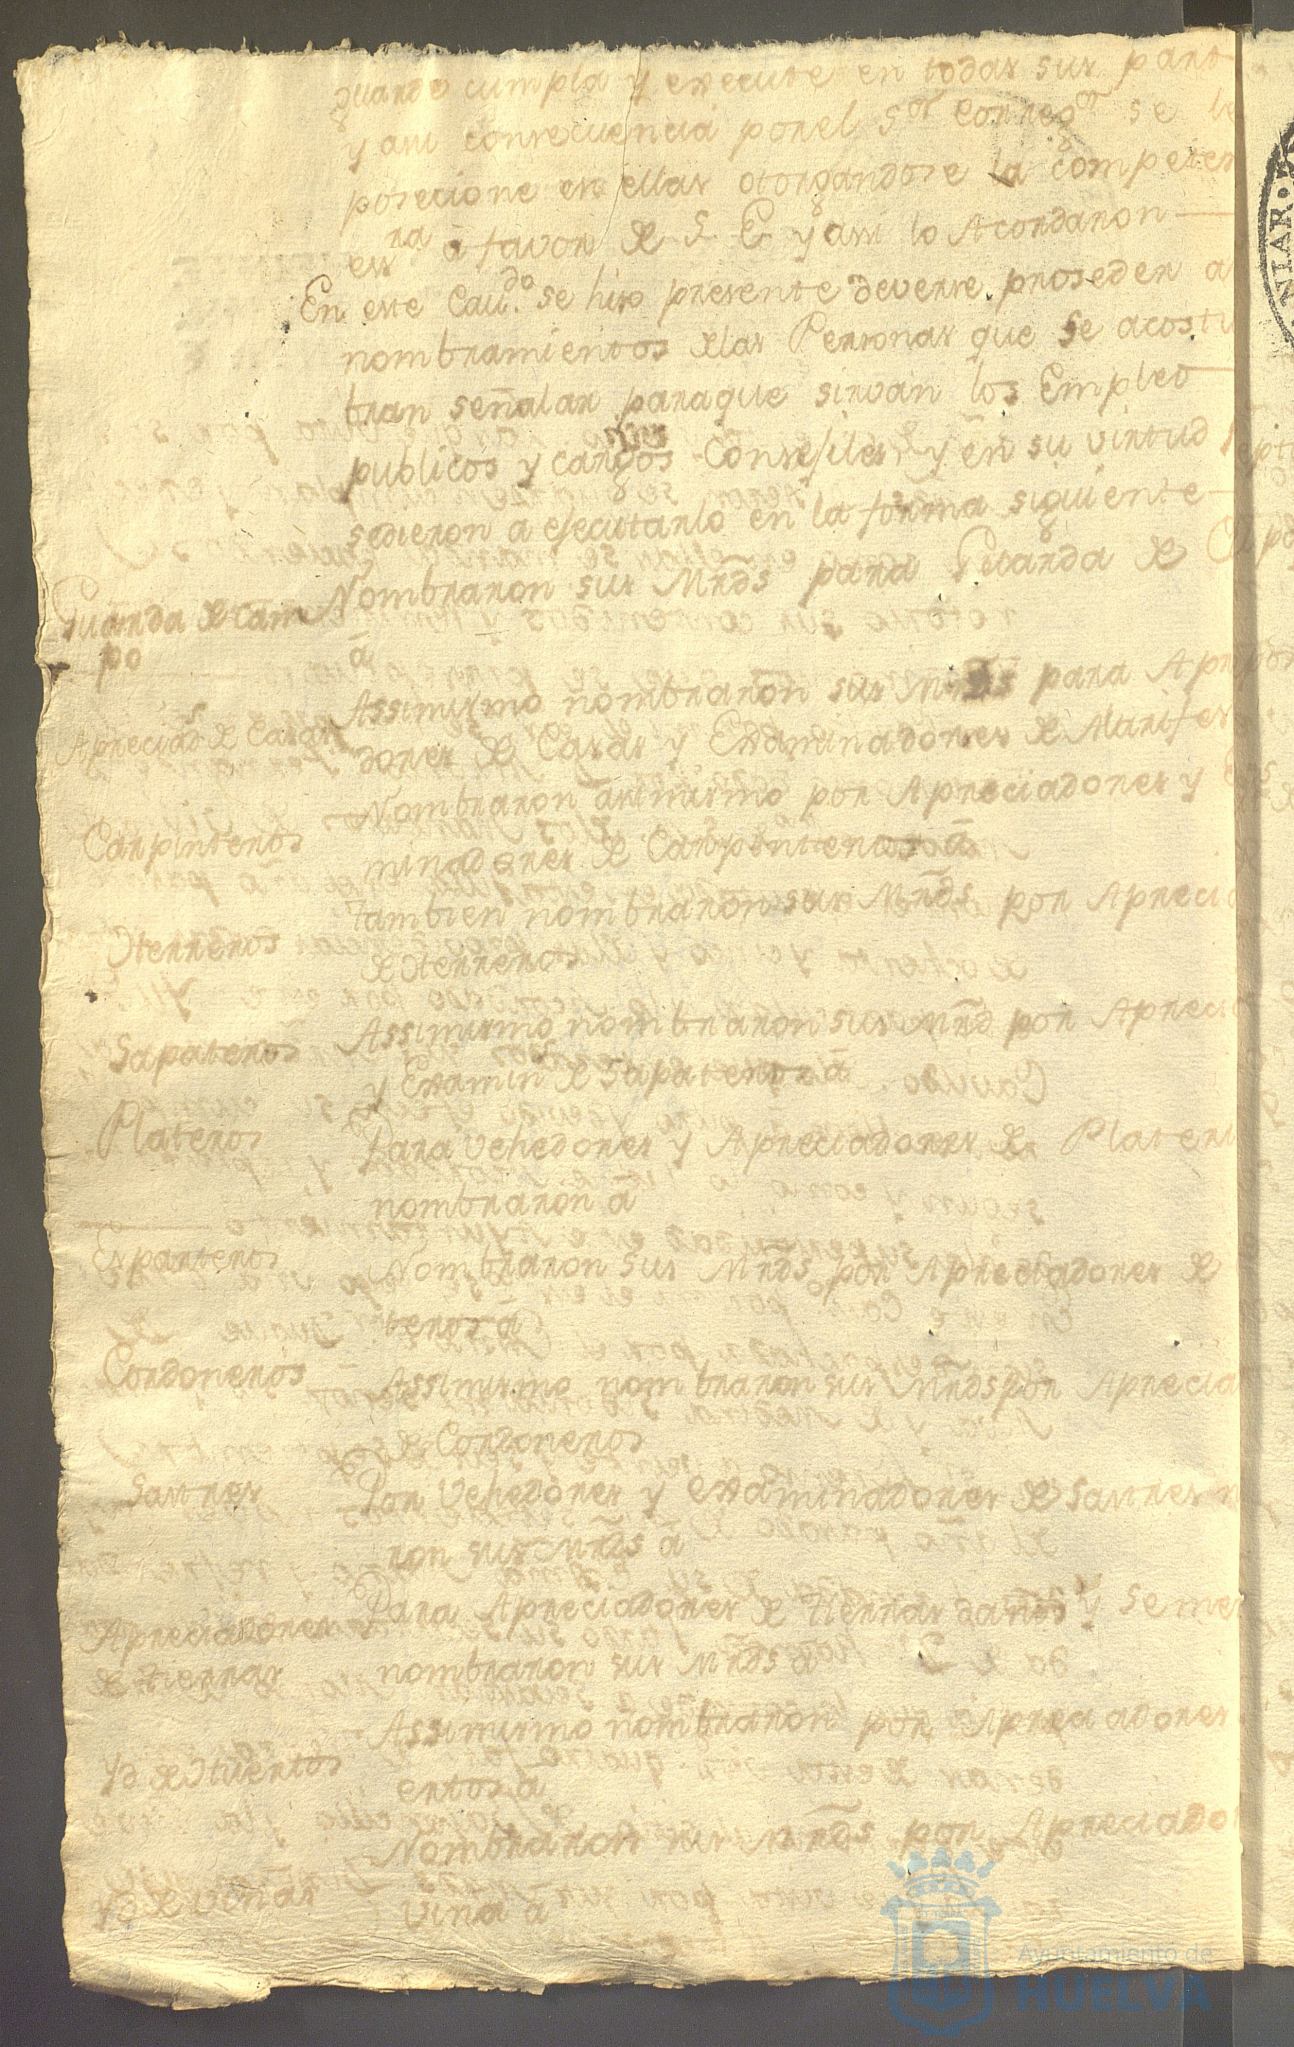 guarde cumpla y execute en todas sus part
y asi consecuencia por el Sor Corregor se le
posecione en ellas otorgandose la competen
essra á favor de S. E. y assi lo Acordaron
En este Caudo se hiso presente deverse proseder a
nombramientos de las Personas que se acostu
bran señalar para que sirvan los Empleo
publicos y cargos Consejiles y en su virtud
sedieron a ejecutarlo en la forma siguiente
Guarda de cam
po
Nombraron sus Mrds para Guarda de
á
Apreciads de Casas
Assimismo nombraron sus Mrds para Apr
dores de Casas y Examinadores de Alarifes
Carpinteros
Nombraron asimismo por Apreciadores y
minadores de Carpinteros á
Herreros
tambien nombraron sus Mrds por Aprecia
de Herreros
Sapateros
Assimismo nombraron sus Mrd por Aprecia
y Examin de Sapateros á
Plateros
Para vehedores y Apreciadores de Plater
nombraron á
Esparteros
Nombraron Sus Mrds por Apreciadores de
teros á
Cordoneros
Assimismo nombraron sus Mrds por Aprecia
de Cordoneros
Sastres
Por Vehedores y examinadores de Sastres n
ron sus Mrds á
Apreciadores
de tierras
Para Apreciadores de tierras daños y Semen
nombraron sus Mrds á
Yd de Huertos
Assimismo nombraron por Apreciadores
ertos á
Yd de Viñas
Nombraron sus Mrds por Apreciado
Viña á
NIAR
Ayuntamiento de
HUELVA